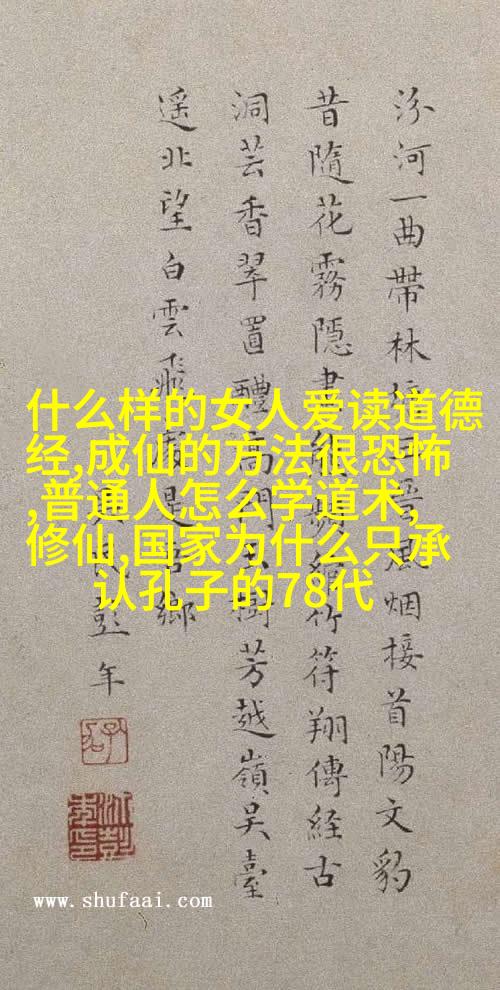 什么样的女人爱读道德
经,成仙的方法很恐怖
,普通人怎么学道术,
修仙,国家为什么只承
认孔子的78代
汾河一曲帶林 烟接首陽文豹
昔隨花霧隱書 竹符翔傳経古
洞芸香翠置醴高門 芳越嶺吴臺
遥北望白雲飛處是吾鄉
彭年
www.shufaai.com